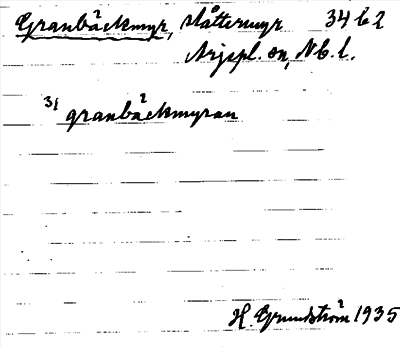 Granbäckmyr, slåttermyr 34 b 2
Arjepl. sn, Nb. l.
3/ granbäckmyran
H. Grundström 1935